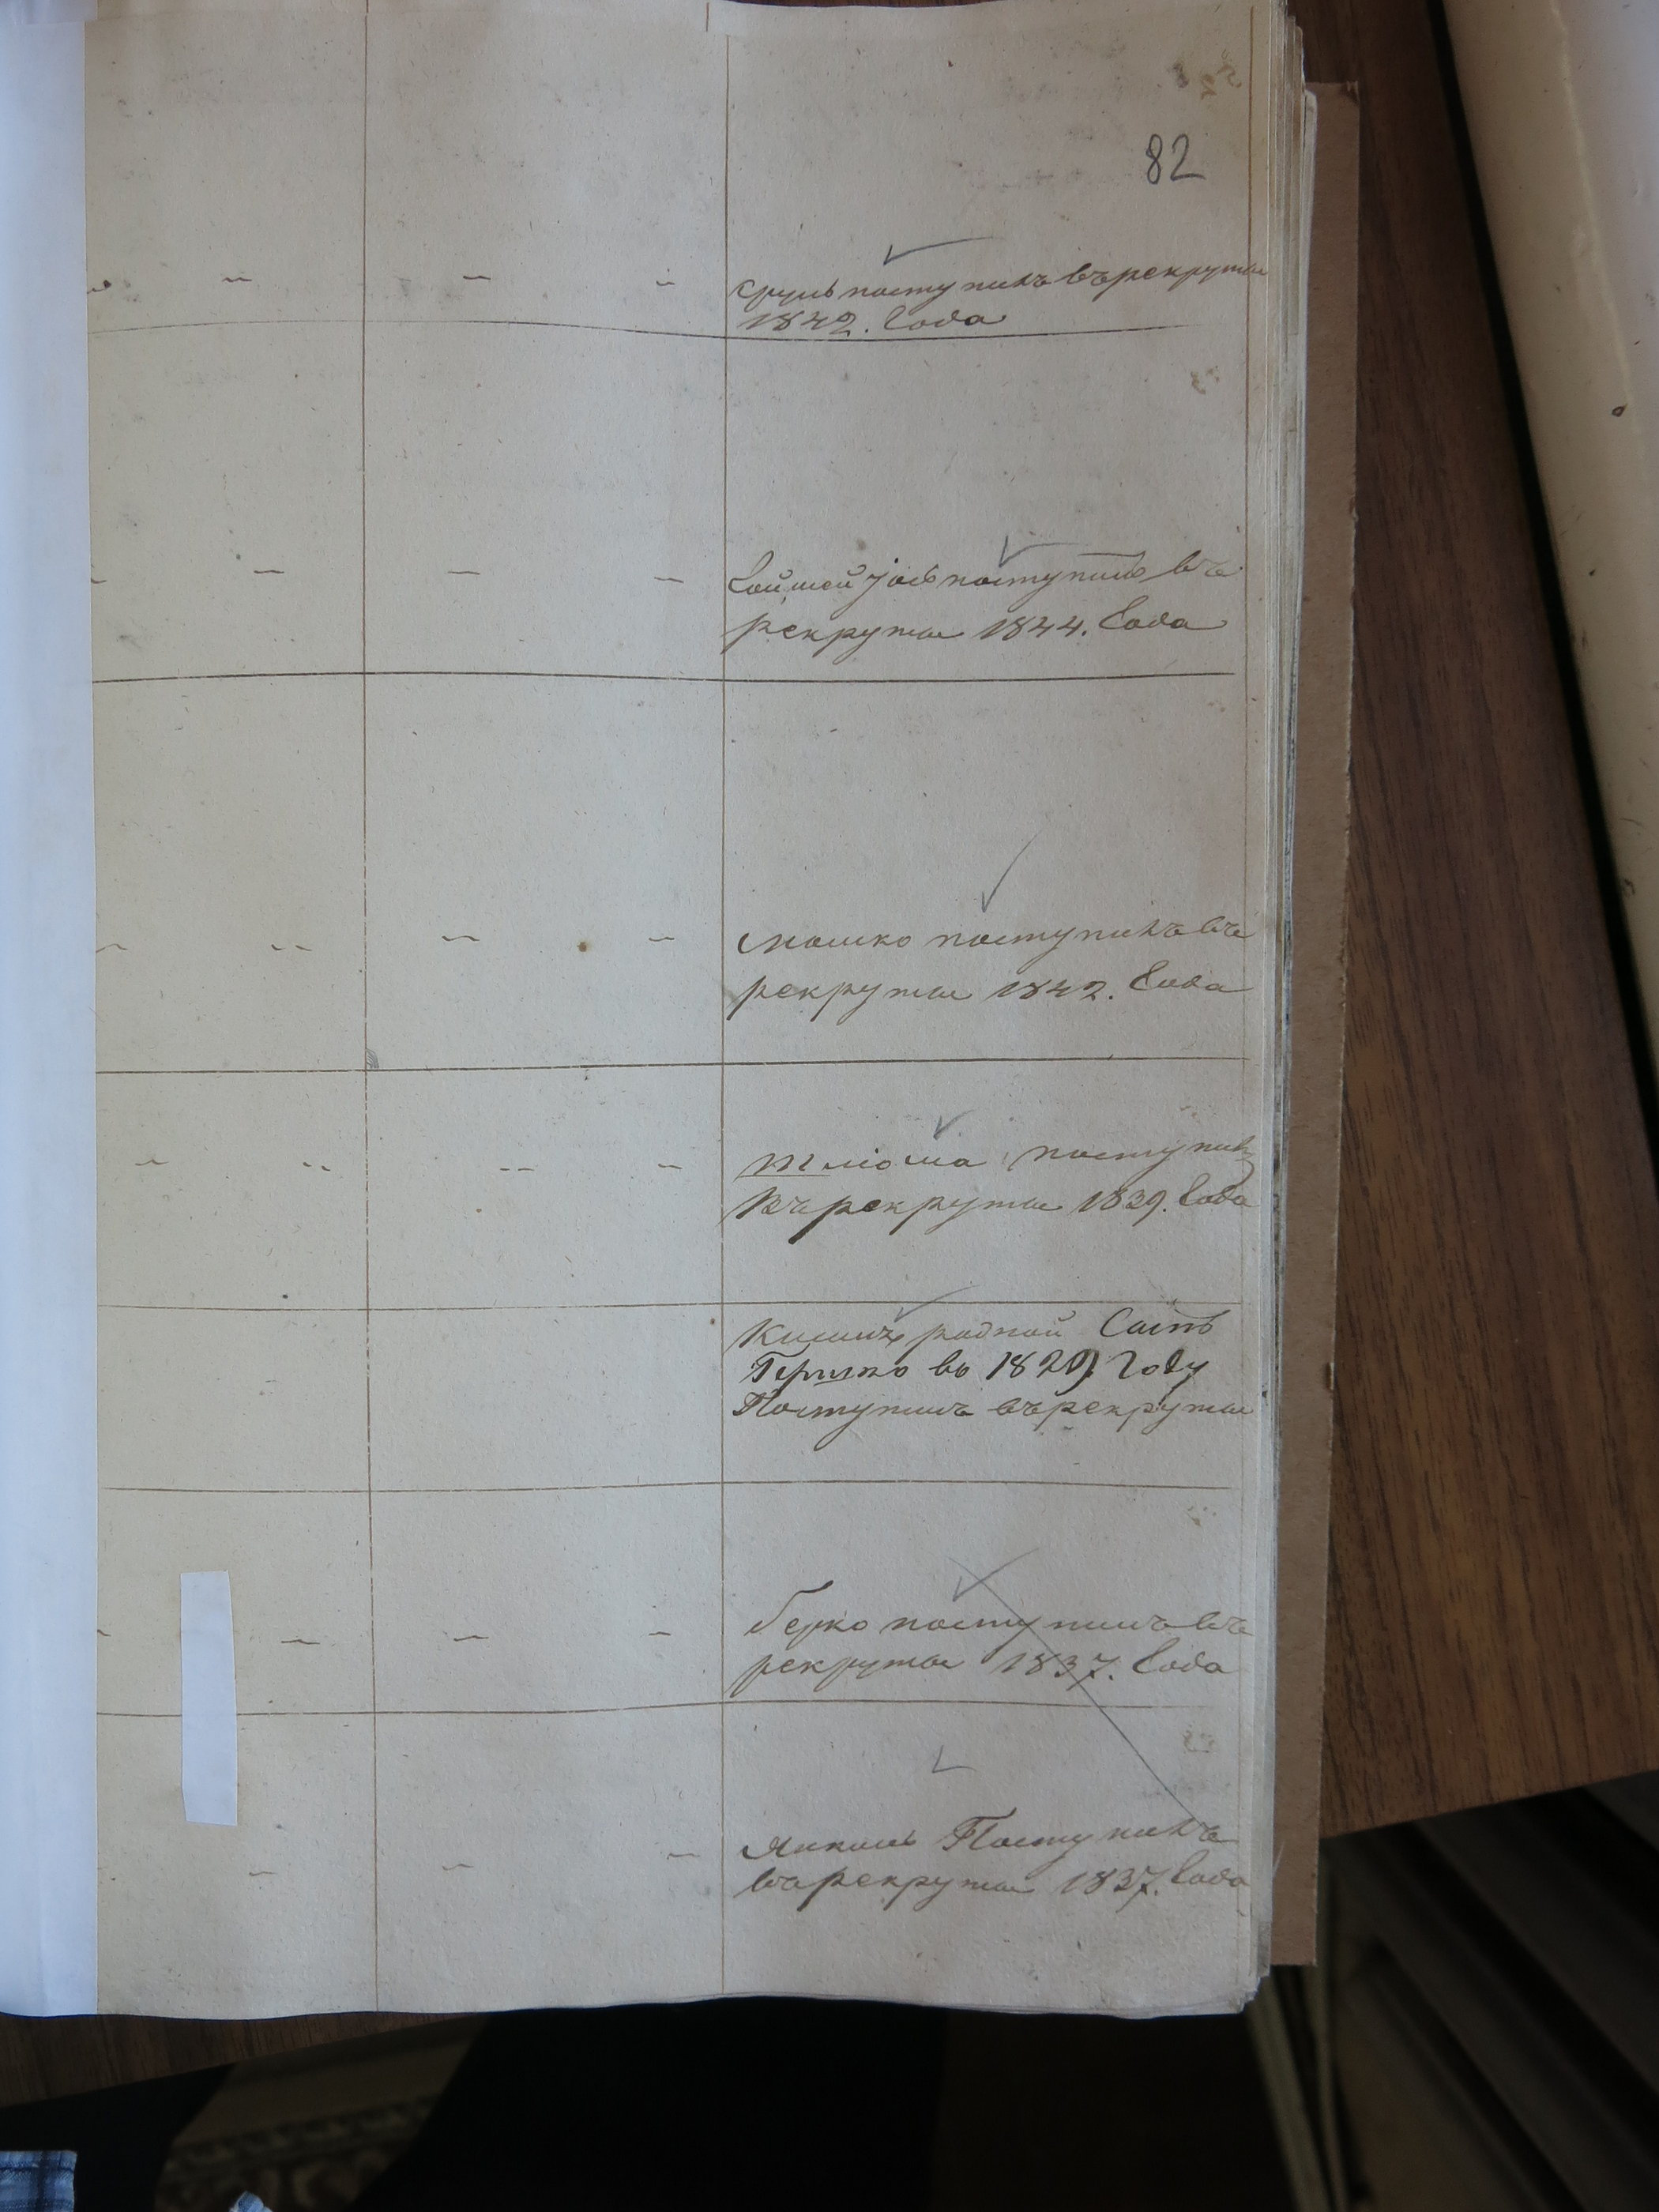 82
Сруль поступилъ въ рекруты
1842. Года
Іось поступилъ въ
рекруты 1844. Года
Мошко поступилъ въ
рекруты 1842. Года
поступилъ
въ рекруты 1839. Года
родной Сынъ
Гершко во 1829 Году
Поступилъ въ рекруты
Берко поступилъ въ
рекруты 1837. Года
Янкель Поступилъ
въ рекруты 1837. Года